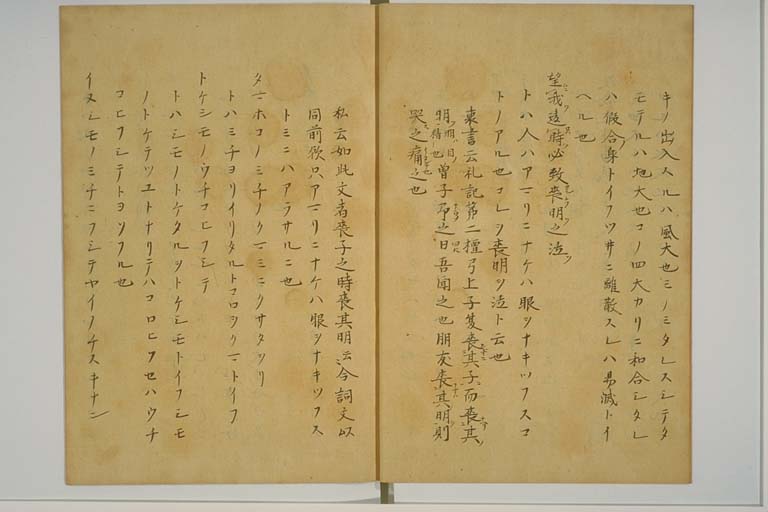 キノ出入スルハ風大也ミノミタレスシテタ
モテルハ地大也コノ四大カリニ和合シタレ
ハ假合身トイフツヰニ離散スレハ易滅トイ
ヘル也
望我遠時必致喪明之泣
トハ人ハアマリニナケハ眼ヲナキツフスコ
トノアル也コレヲ喪明ノ泣ト云也
裏書云礼記第二檀弓上子夏喪其子而喪其
明曽子弔之曰吾聞之也朋友喪其明則
哭之痛之也
私云如此文者喪子之時喪其明云今詞文以
同前欤只アマリニナケハ眼ヲナキツフス
トミニハアラサルニ也
タマホコノミチノクマミニクサタヲリ
トハミチヨリイリタルトコロヲクマトイフ
トケシモノウチコヒフシテ
トハシモノトケタルヲトケシモトイフシモ
ノトケテツユトナリテハコロヒフセハウチ
コヒフシテトヨソフル也
イヌシモノミチニフシテヤイノチスキナン